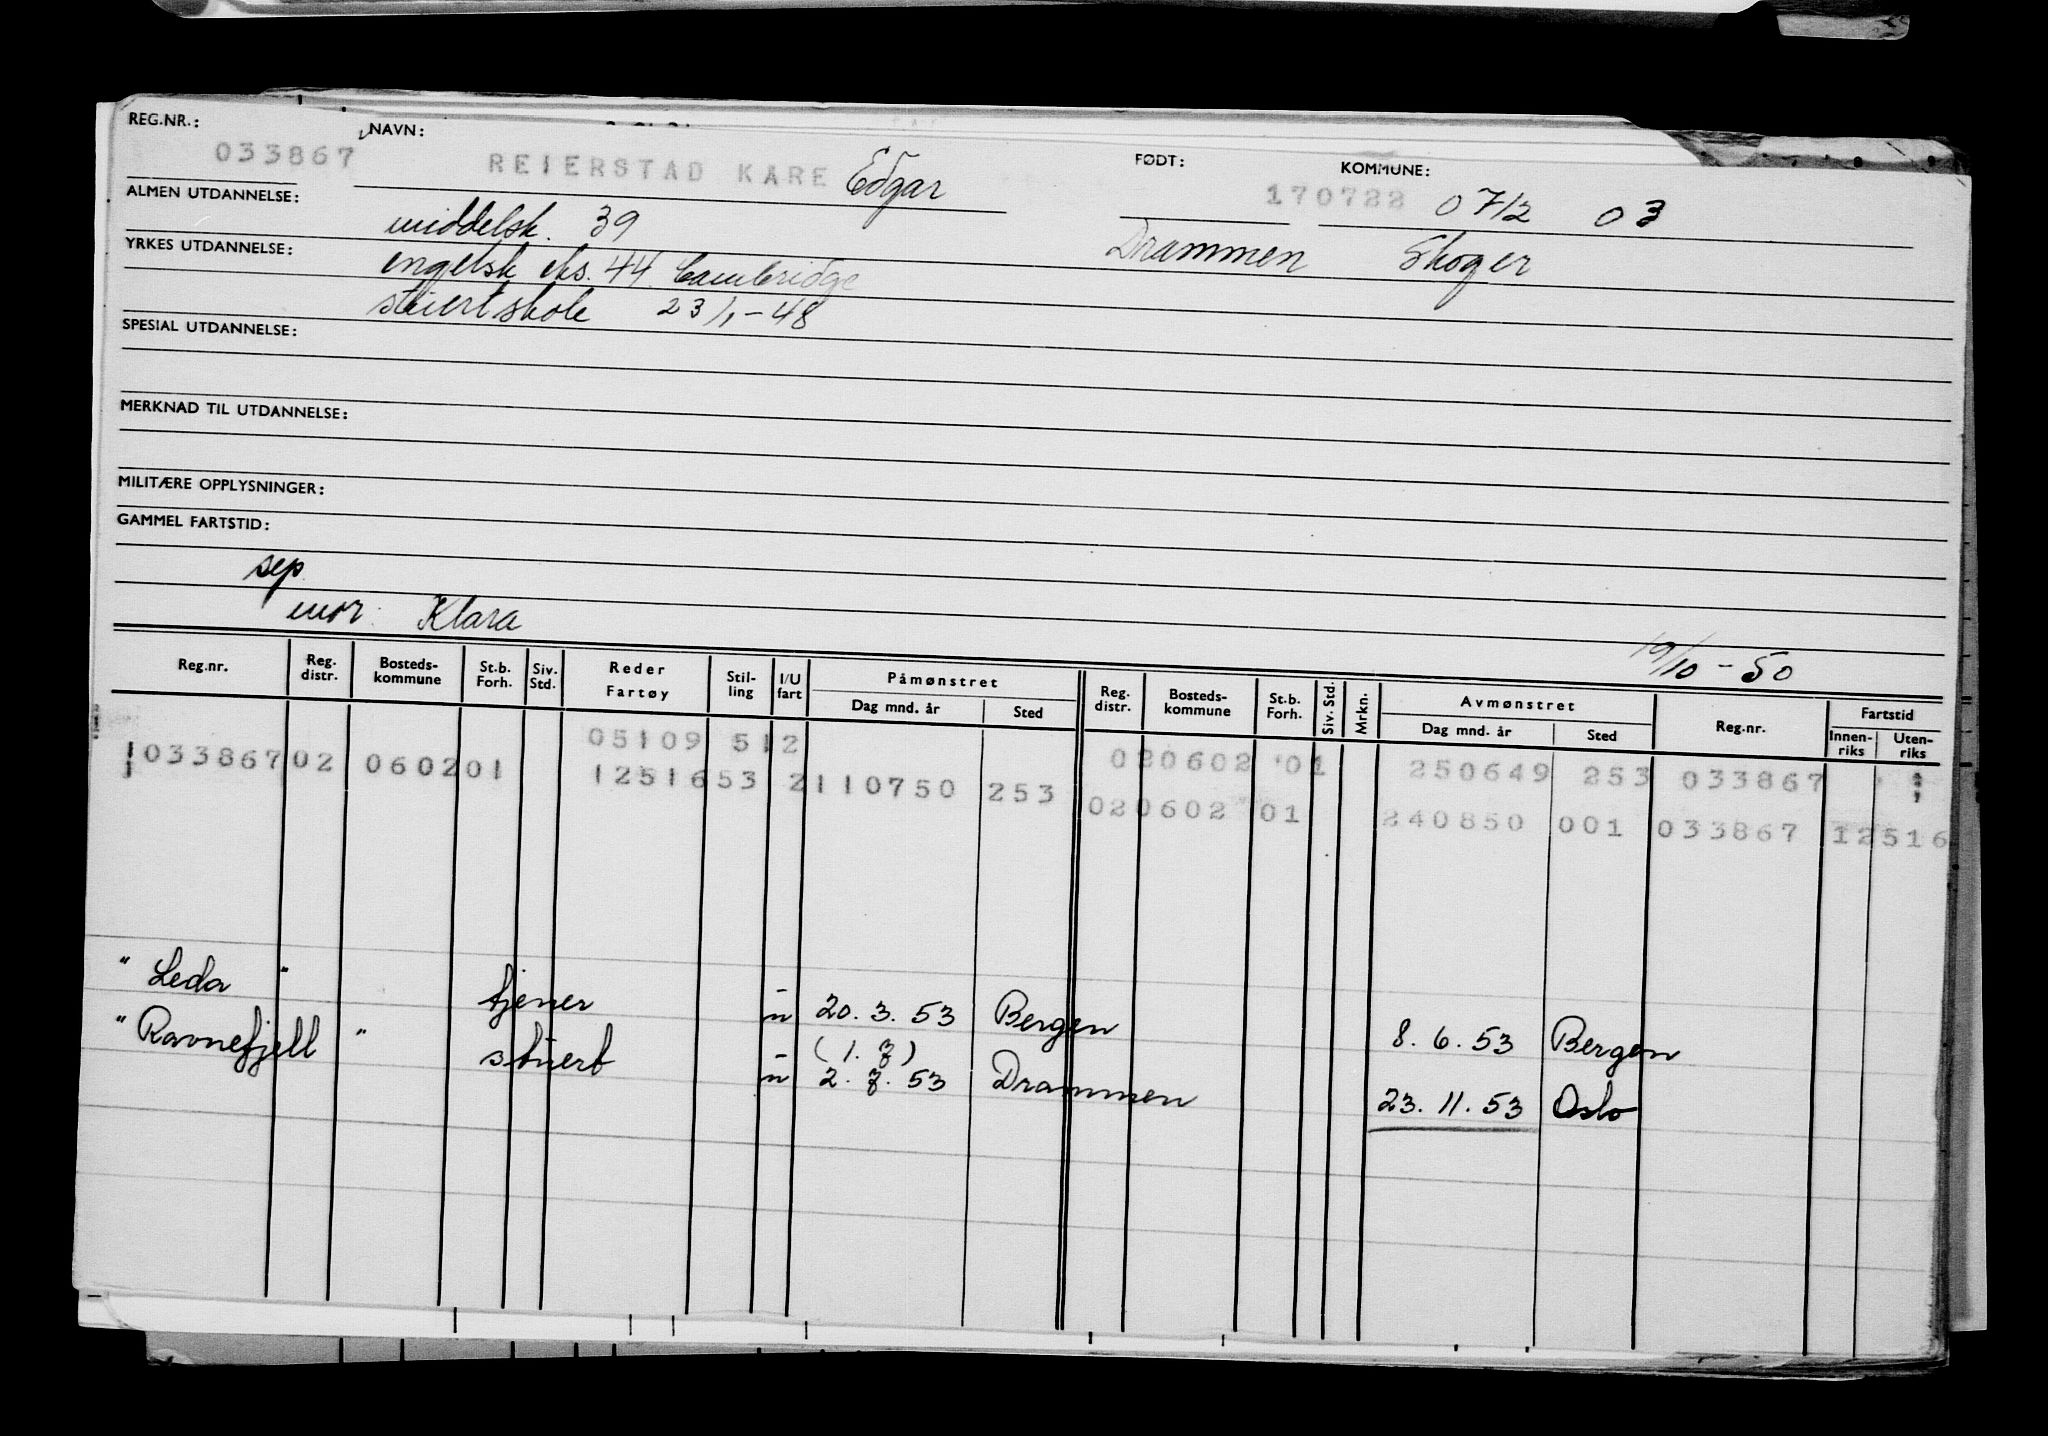 REG.NR.: NAVN: FØDT: KOMMUNE:
033867 REIERSTAD KARE Edgar 170722 0712 03
ALMEN UTDANNELSE: middelsk. 39 Drammen Skoger
YRKES UTDANNELSE: engelsk eks. 44 Cambridge
stüertskole 23/1-48
SPESIAL UTDANNELSE:
MERKNAD TIL UTDANNELSE:
MILITÆRE OPPLYSNINGER:
GAMMEL FARTSTID:
sep.
mor: Klara
19/10-50
Reg.nr. Reg. distr. Bosteds-kommune St.b. Forh. Siv. Std. Reder Fartøy Stil-ling I/U fart Påmønstret Dag mnd. år Sted Reg. distr. Bosteds-kommune St.b. Forh. Siv. Std. Mrkn. Avmønstret Dag mnd. år Sted Reg.nr. Fartstid Innen-riks Uten-riks
05109 512 020602 01 250649 253 033867
033867 02 0602 01 12516 53 2 110750 253 020602 01 240850 001 033867 12516
" Leda " tjener ū 20. 3. 53 Bergen 8. 6. 53 Bergen
(1. 7)
" Ravnefjell " stüert ū 2. 7. 53 Drammen 23. 11. 53 Oslo